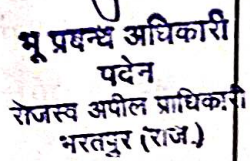 भू प्रबन्ध अधिकारी
पदेन
रोजस्व अपील प्राधिकारी
भरतपुर (राज.)